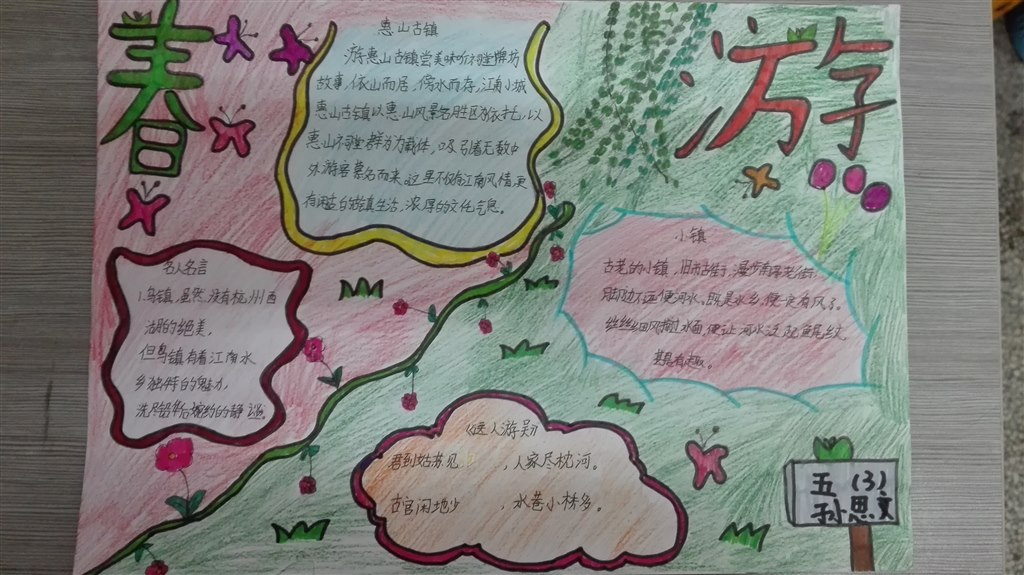 春游
惠山古镇
游惠山古镇尝美味听祠堂牌坊
故事,依山而居,傍水而存,江南小城
惠山古镇以惠山风景名胜区为依托,以
惠山祠堂群为为载体,吸引着无数中
外游客慕名而来。这里不仅有江南风情,更
有闲适的古镇生活,浓厚的文化气息。
名人名言
1.乌镇,虽然没有杭州西
湖的绝美,
但乌镇有着江南水
乡独特的魅力,
洗尽铅华后婉约的静谧。
小镇
古老的小镇,旧市古街,漫步南浔老街,
脚边不远便河水。既是水乡,便定有风了。
丝丝细风掠过水面,便让河水泛起鱼尾纹,
甚是有趣。
《送人游吴》
君到姑苏见,人家尽枕河。
古宫闲地少,水巷小桥多。
五(3)
孙思文